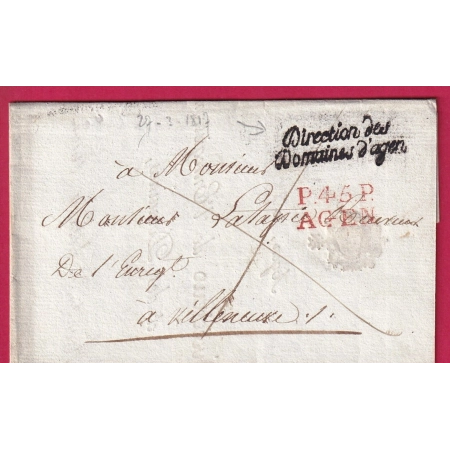 24-3-1817
Direction des
Domaines d'agen
à Monsieur
P.45.P.
AGEN
Monsieur Latapie Receveur
De l'Enregt.
à Villeneuve s.